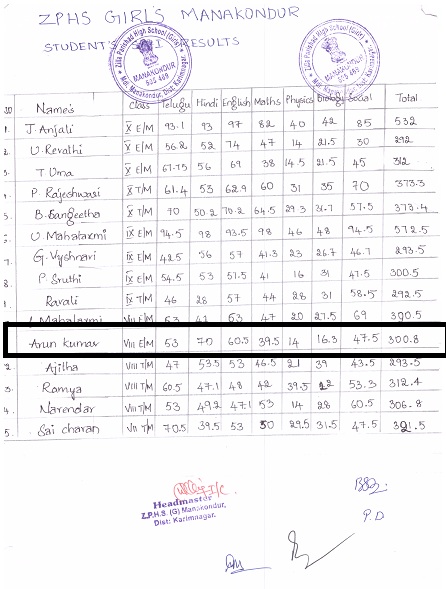 ZPHS GIRL'S MANAKONDUR
STUDENT'S RESULTS
Zilla Parishad High School (Girls)
MANAKONDUR
505 469
Name's Class Telugu Hindi English Maths Physics biology Social Total
1. J. Anjali X E/M 93.1 93 97 82 40 42 85 532
2. U. Revathi X E/M 56.2 52 74 47 14 21.5 30 292
3. T. Uma X E/M 67.75 56 69 38 14.5 21.5 45 312
4. P. Rajeshwari X T/M 61.4 53 62.9 60 31 35 70 373.3
5. B. Sangeetha X T/M 70 50.2 70.2 64.5 29.3 31.7 57.5 373.4
U. Mahalaxmi IX E/M 94.5 98 93.5 98 46 48 94.5 572.5
7. G. Vyshnavi IX E/M 42.5 56 57 41.3 23 26.7 46.7 293.5
8. P. Sruthi IX E/M 54.5 53 57.5 41 16 31 47.5 300.5
Ravali IX T/M 46 28 57 44 28 31 58.5 292.5
Mahalaxmi VIII E/M 53 41 63 47 20 27.5 69 390.5
Arun Kumar VIII E/M 53 70 60.5 39.5 14 16.3 47.5 300.8
2 Ajitha VIII T/M 47 53.5 53 46.5 21 39 43.5 293.5
3. Ramya VIII T/M 60.5 47.1 48 42 39.5 22 53.3 312.4
4. Narendar VIII T/M 53 49.2 47.1 53 14 28 60.5 306.8
5. Sai charan VII T/M 70.5 39.5 53 50 29.5 31.5 47.5 321.5
I/C
Headmaster
Z.P.H.S. (G) Manakondur,
Dist: Karimnagar.
P.D